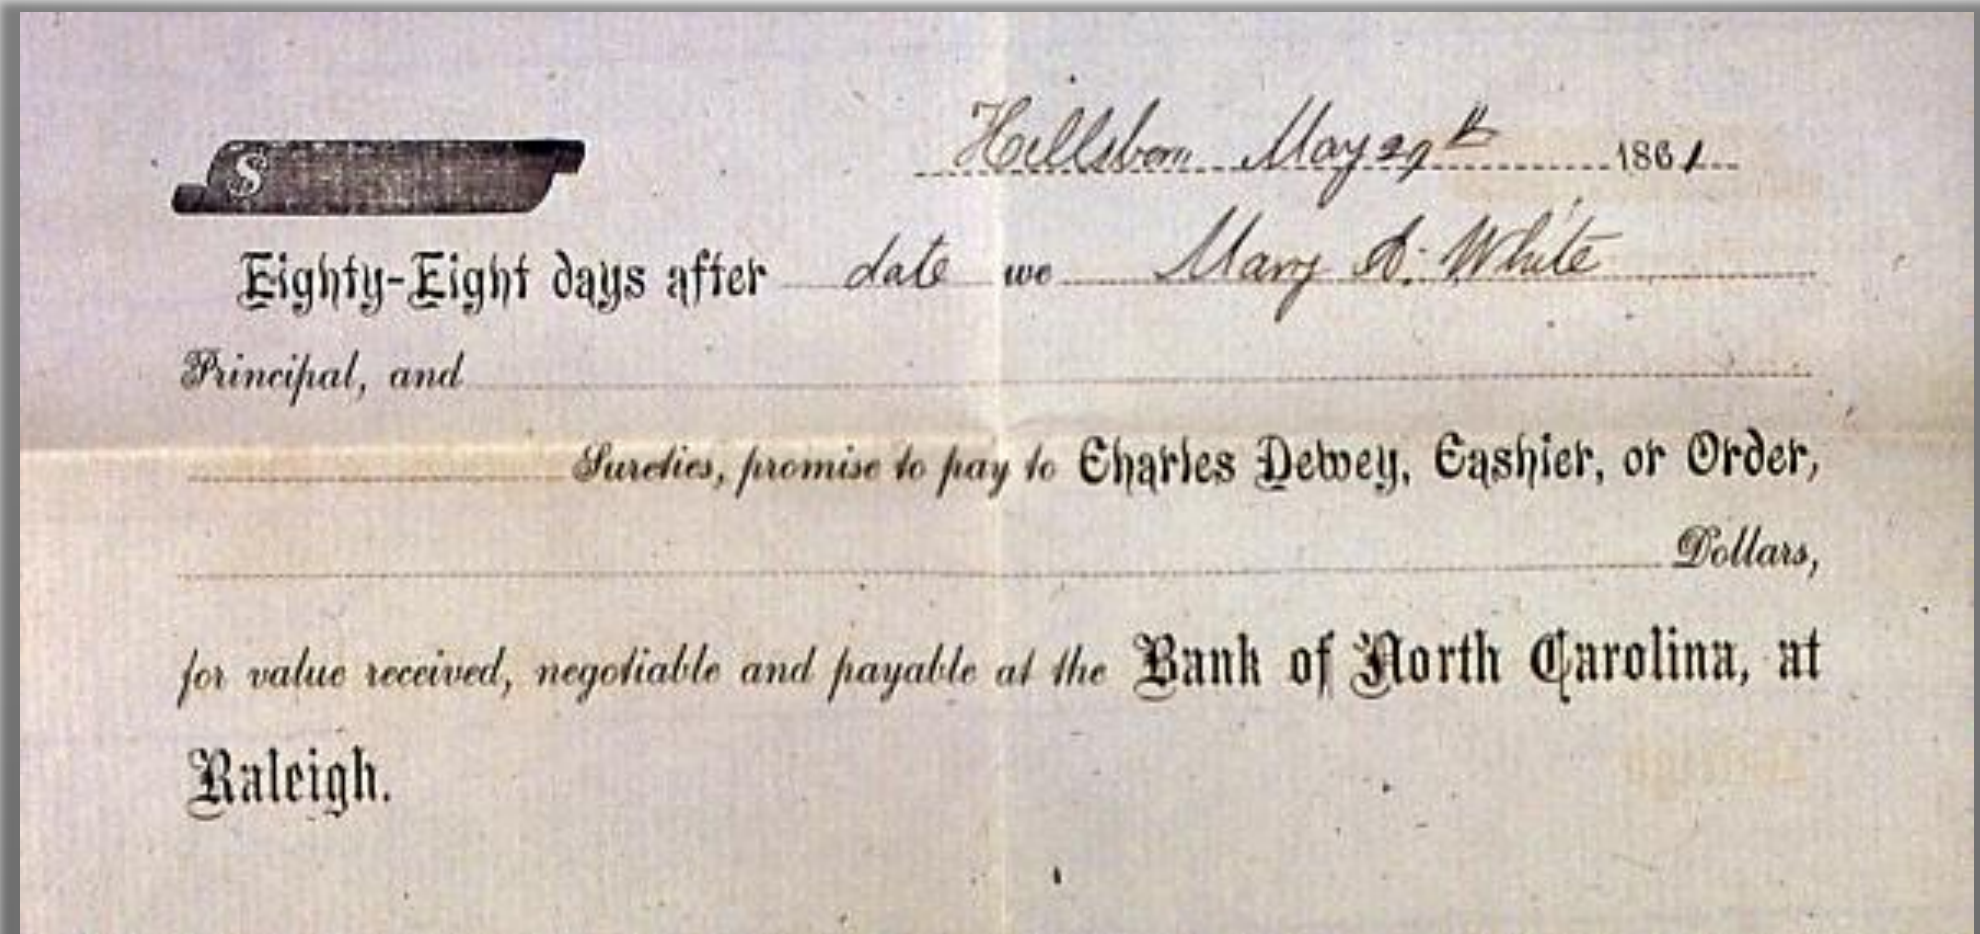 Hillsboro May 29th 1861
$
Eighty-Eight days after date we Mary A. White
Principal, and
Sureties, promise to pay to Charles Dewey, Cashier, or Order,
Dollars,
for value received, negotiable and payable at the Bank of North Carolina, at
Raleigh.